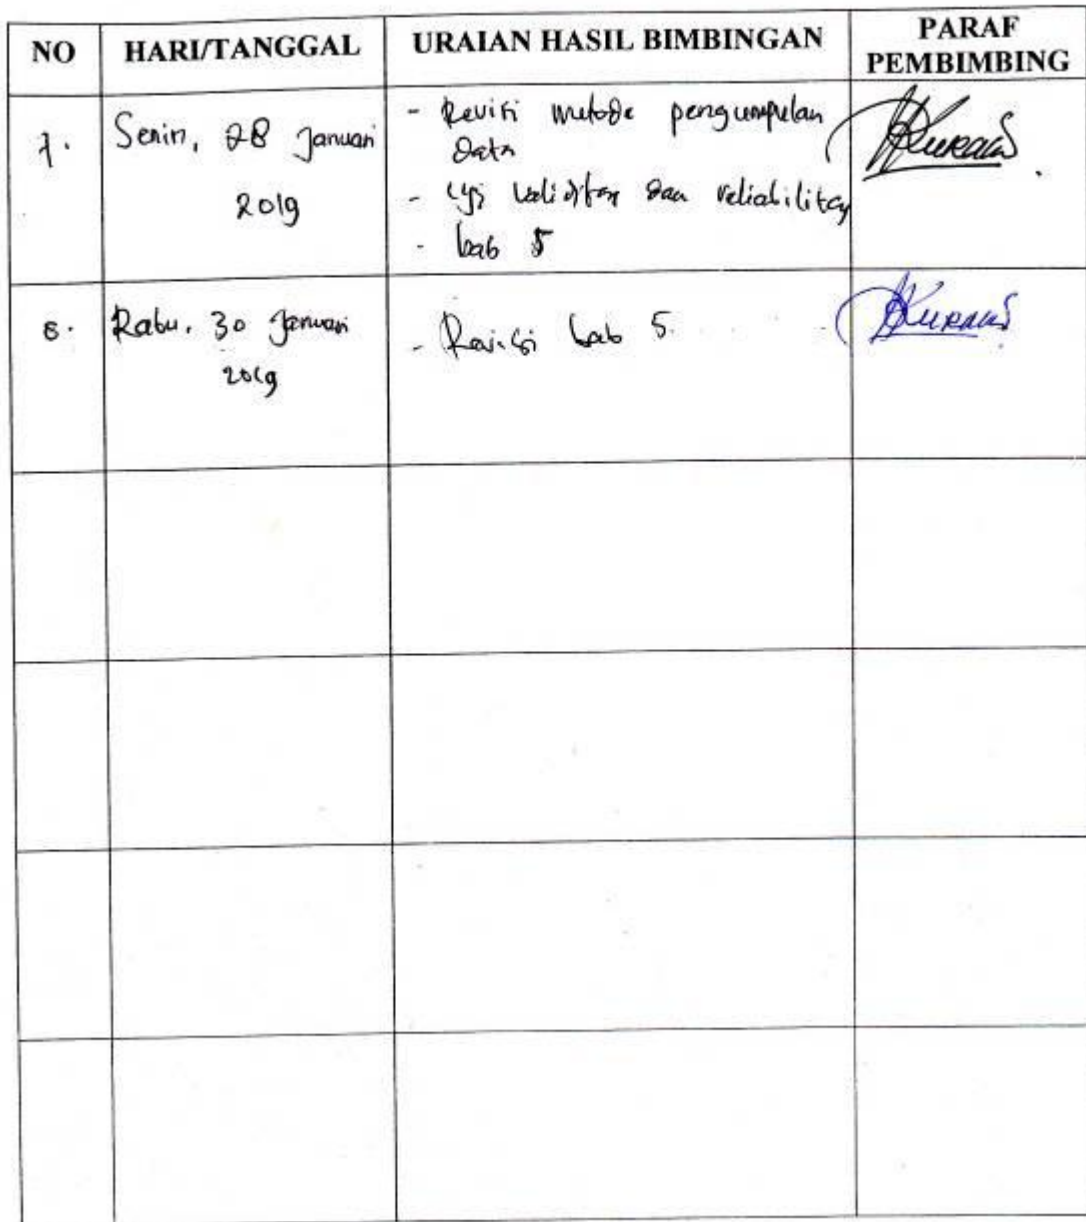 NO HARI/TANGGAL URAIAN HASIL BIMBINGAN PARAF
PEMBIMBING
7. Senin, 28 Januari - Revisi metode pengumpulan
data
2019 - Uji validitas dan reliabilitas
- bab 5
8. Rabu, 30 Januari - Revisi bab 5.
2019